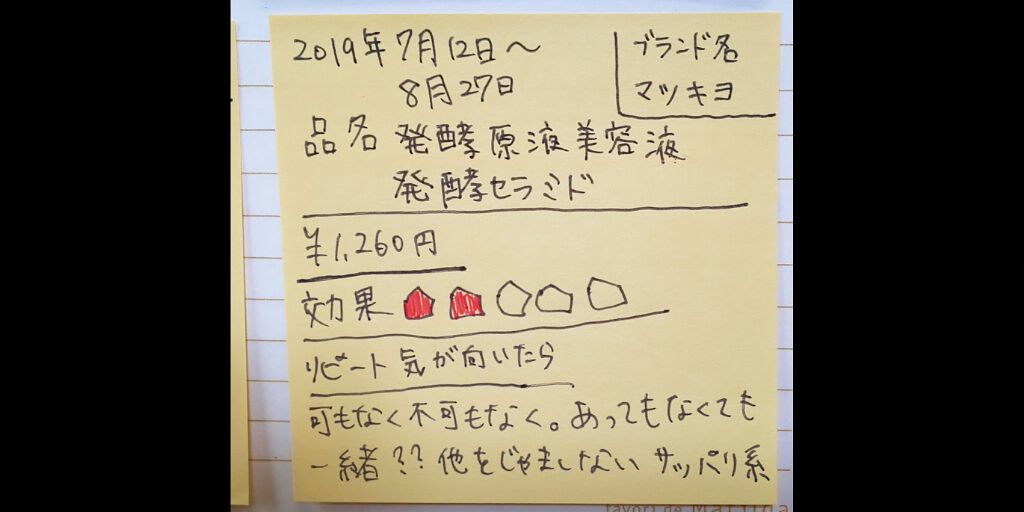 2019年7月12日〜
8月27日
ブランド名
マツキヨ
品名 発酵原液美容液
発酵セラミド
¥1,260円
効果
リピート 気が向いたら
可もなく不可もなく。あってもなくても
一緒?? 他をじゃましない サッパリ系
favori de Matilda